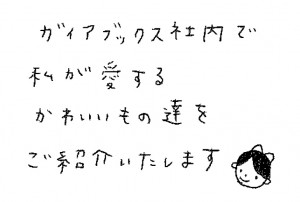 ガイアブックス社内で
私が愛する
かわいいもの達を
ご紹介いたします